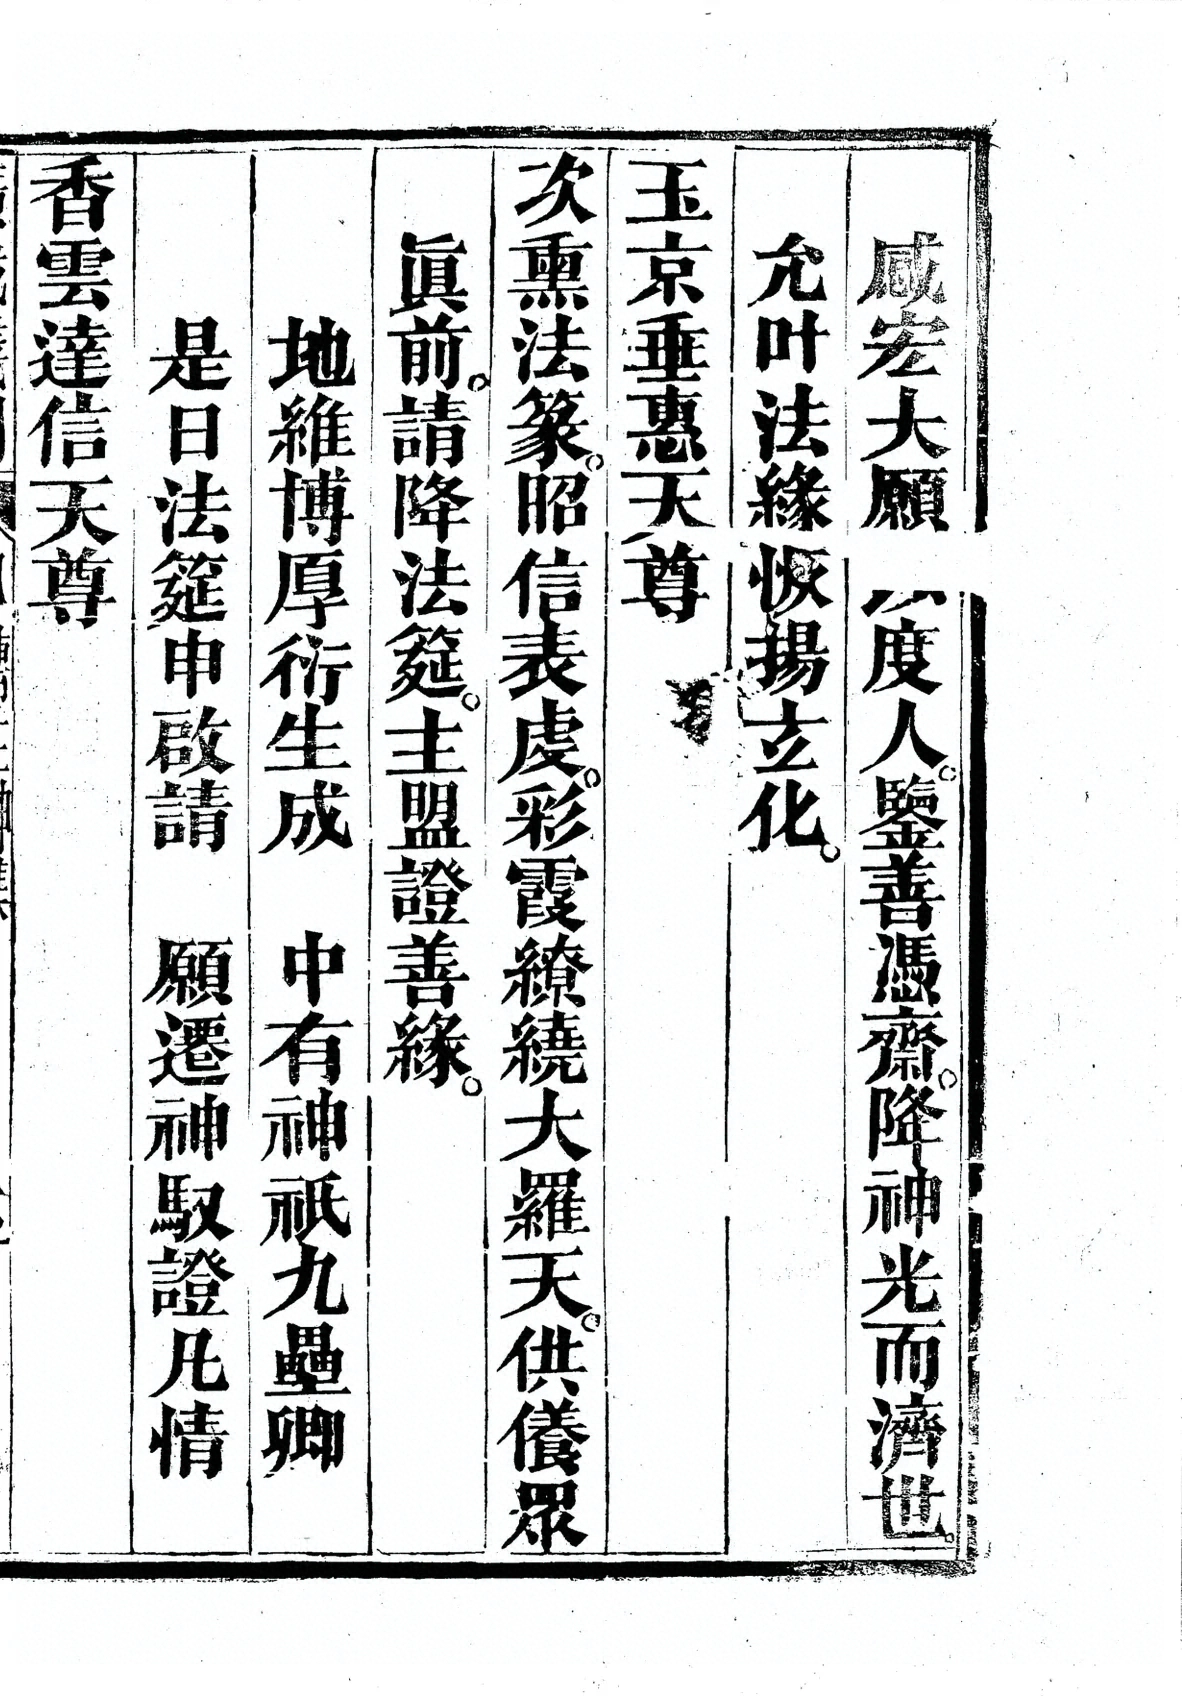 咸宏大願度人。鑒善憑齋。降神光而濟世。
允叶法緣恢揚玄化。
玉京垂惠天尊
次熏法篆。昭信表虔。彩霞繚繞大羅天。供儀眾
眞前。請降法筵。主盟證善緣。
地維博厚衍生成　中有神祇九壘卿
是日法筵申啟請　願遷神馭證凡情
香雲達信天尊